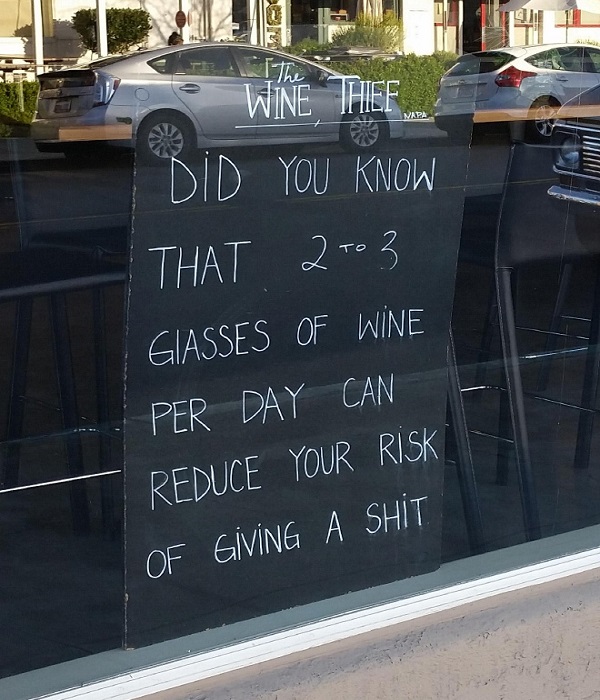 The
WINE THIEF
NAPA
DiD YOU KNOW
THAT 2 TO 3
GlASSES OF WiNE
PER DAY CAN
REDUCE YOUR RiSK
OF GiViNG A SHiT